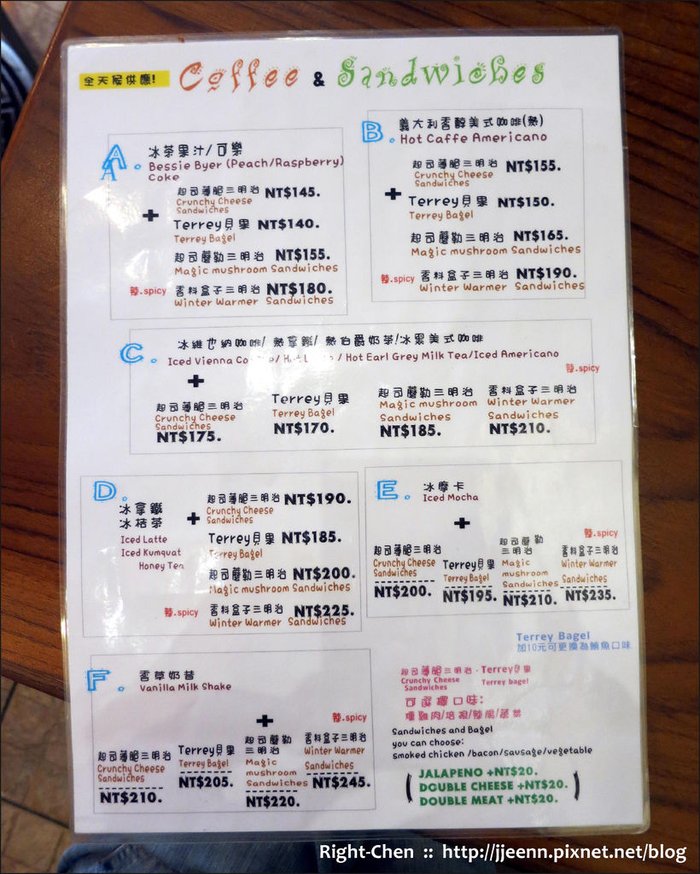 全天候供應! Coffee & Sandwiches
A. 冰茶果汁/可樂
Bessie Byer (Peach/Raspberry)
Coke
+
起司薄脆三明治 NT$145.
Crunchy Cheese
Sandwiches
Terrey貝果 NT$140.
Terrey Bagel
起司蘑勒三明治 NT$155.
Magic mushroom Sandwiches
辣.spicy 香料盒子三明治 NT$180.
Winter Warmer Sandwiches
B. 義大利香醇美式咖啡(熱)
Hot Caffe Americano
+
起司薄脆三明治 NT$155.
Crunchy Cheese
Sandwiches
Terrey貝果 NT$150.
Terrey Bagel
起司蘑勒三明治 NT$165.
Magic mushroom Sandwiches
辣.spicy 香料盒子三明治 NT$190.
Winter Warmer Sandwiches
C. 冰維也納咖啡/ 熱拿鐵/ 熱伯爵奶茶/冰果美式咖啡
Iced Vienna / Hot / Hot Earl Grey Milk Tea/Iced Americano
+
起司薄脆三明治
Crunchy Cheese
Sandwiches
NT$175.
Terrey貝果
Terrey Bagel
NT$170.
起司蘑勒三明治
Magic mushroom
Sandwiches
NT$185.
辣.spicy
香料盒子三明治
Winter Warmer
Sandwiches
NT$210.
D. 冰拿鐵
冰桔茶
Iced Latte
Iced Kumquat
Honey Tea
+
起司薄脆三明治 NT$190.
Crunchy Cheese
Sandwiches
Terrey貝果 NT$185.
Terrey Bagel
起司蘑勒三明治 NT$200.
Magic mushroom Sandwiches
辣.spicy 香料盒子三明治 NT$225.
Winter Warmer Sandwiches
E. 冰摩卡
Iced Mocha
+
起司薄脆三明治
Crunchy Cheese
Sandwiches
NT$200.
Terrey貝果
Terrey Bagel
NT$195.
起司蘑勒
三明治
Magic
mushroom
Sandwiches
NT$210.
辣.spicy
香料盒子三明治
Winter Warmer
Sandwiches
NT$235.
Terrey Bagel
加10元可更換為鮪魚口味
F. 香草奶昔
Vanilla Milk Shake
+
起司薄脆三明治
Crunchy Cheese
Sandwiches
NT$210.
Terrey貝果
Terrey Bagel
NT$205.
起司蘑勒
三明治
Magic
mushroom
Sandwiches
NT$220.
辣.spicy
香料盒子三明治
Winter Warmer
Sandwiches
NT$245.
起司薄脆三明治．Terrey貝果
Crunchy Cheese Terrey bagel
Sandwiches
可選擇口味:
燻雞肉/培根/臘腸/蔬菜
Sandwiches and Bagel
you can choose:
smoked chicken /bacon/sausage/vegetable
(JALAPENO +NT$20.
DOUBLE CHEESE +NT$20.
DOUBLE MEAT +NT$20.)
Right-Chen :: http://jjeenn.pixnet.net/blog